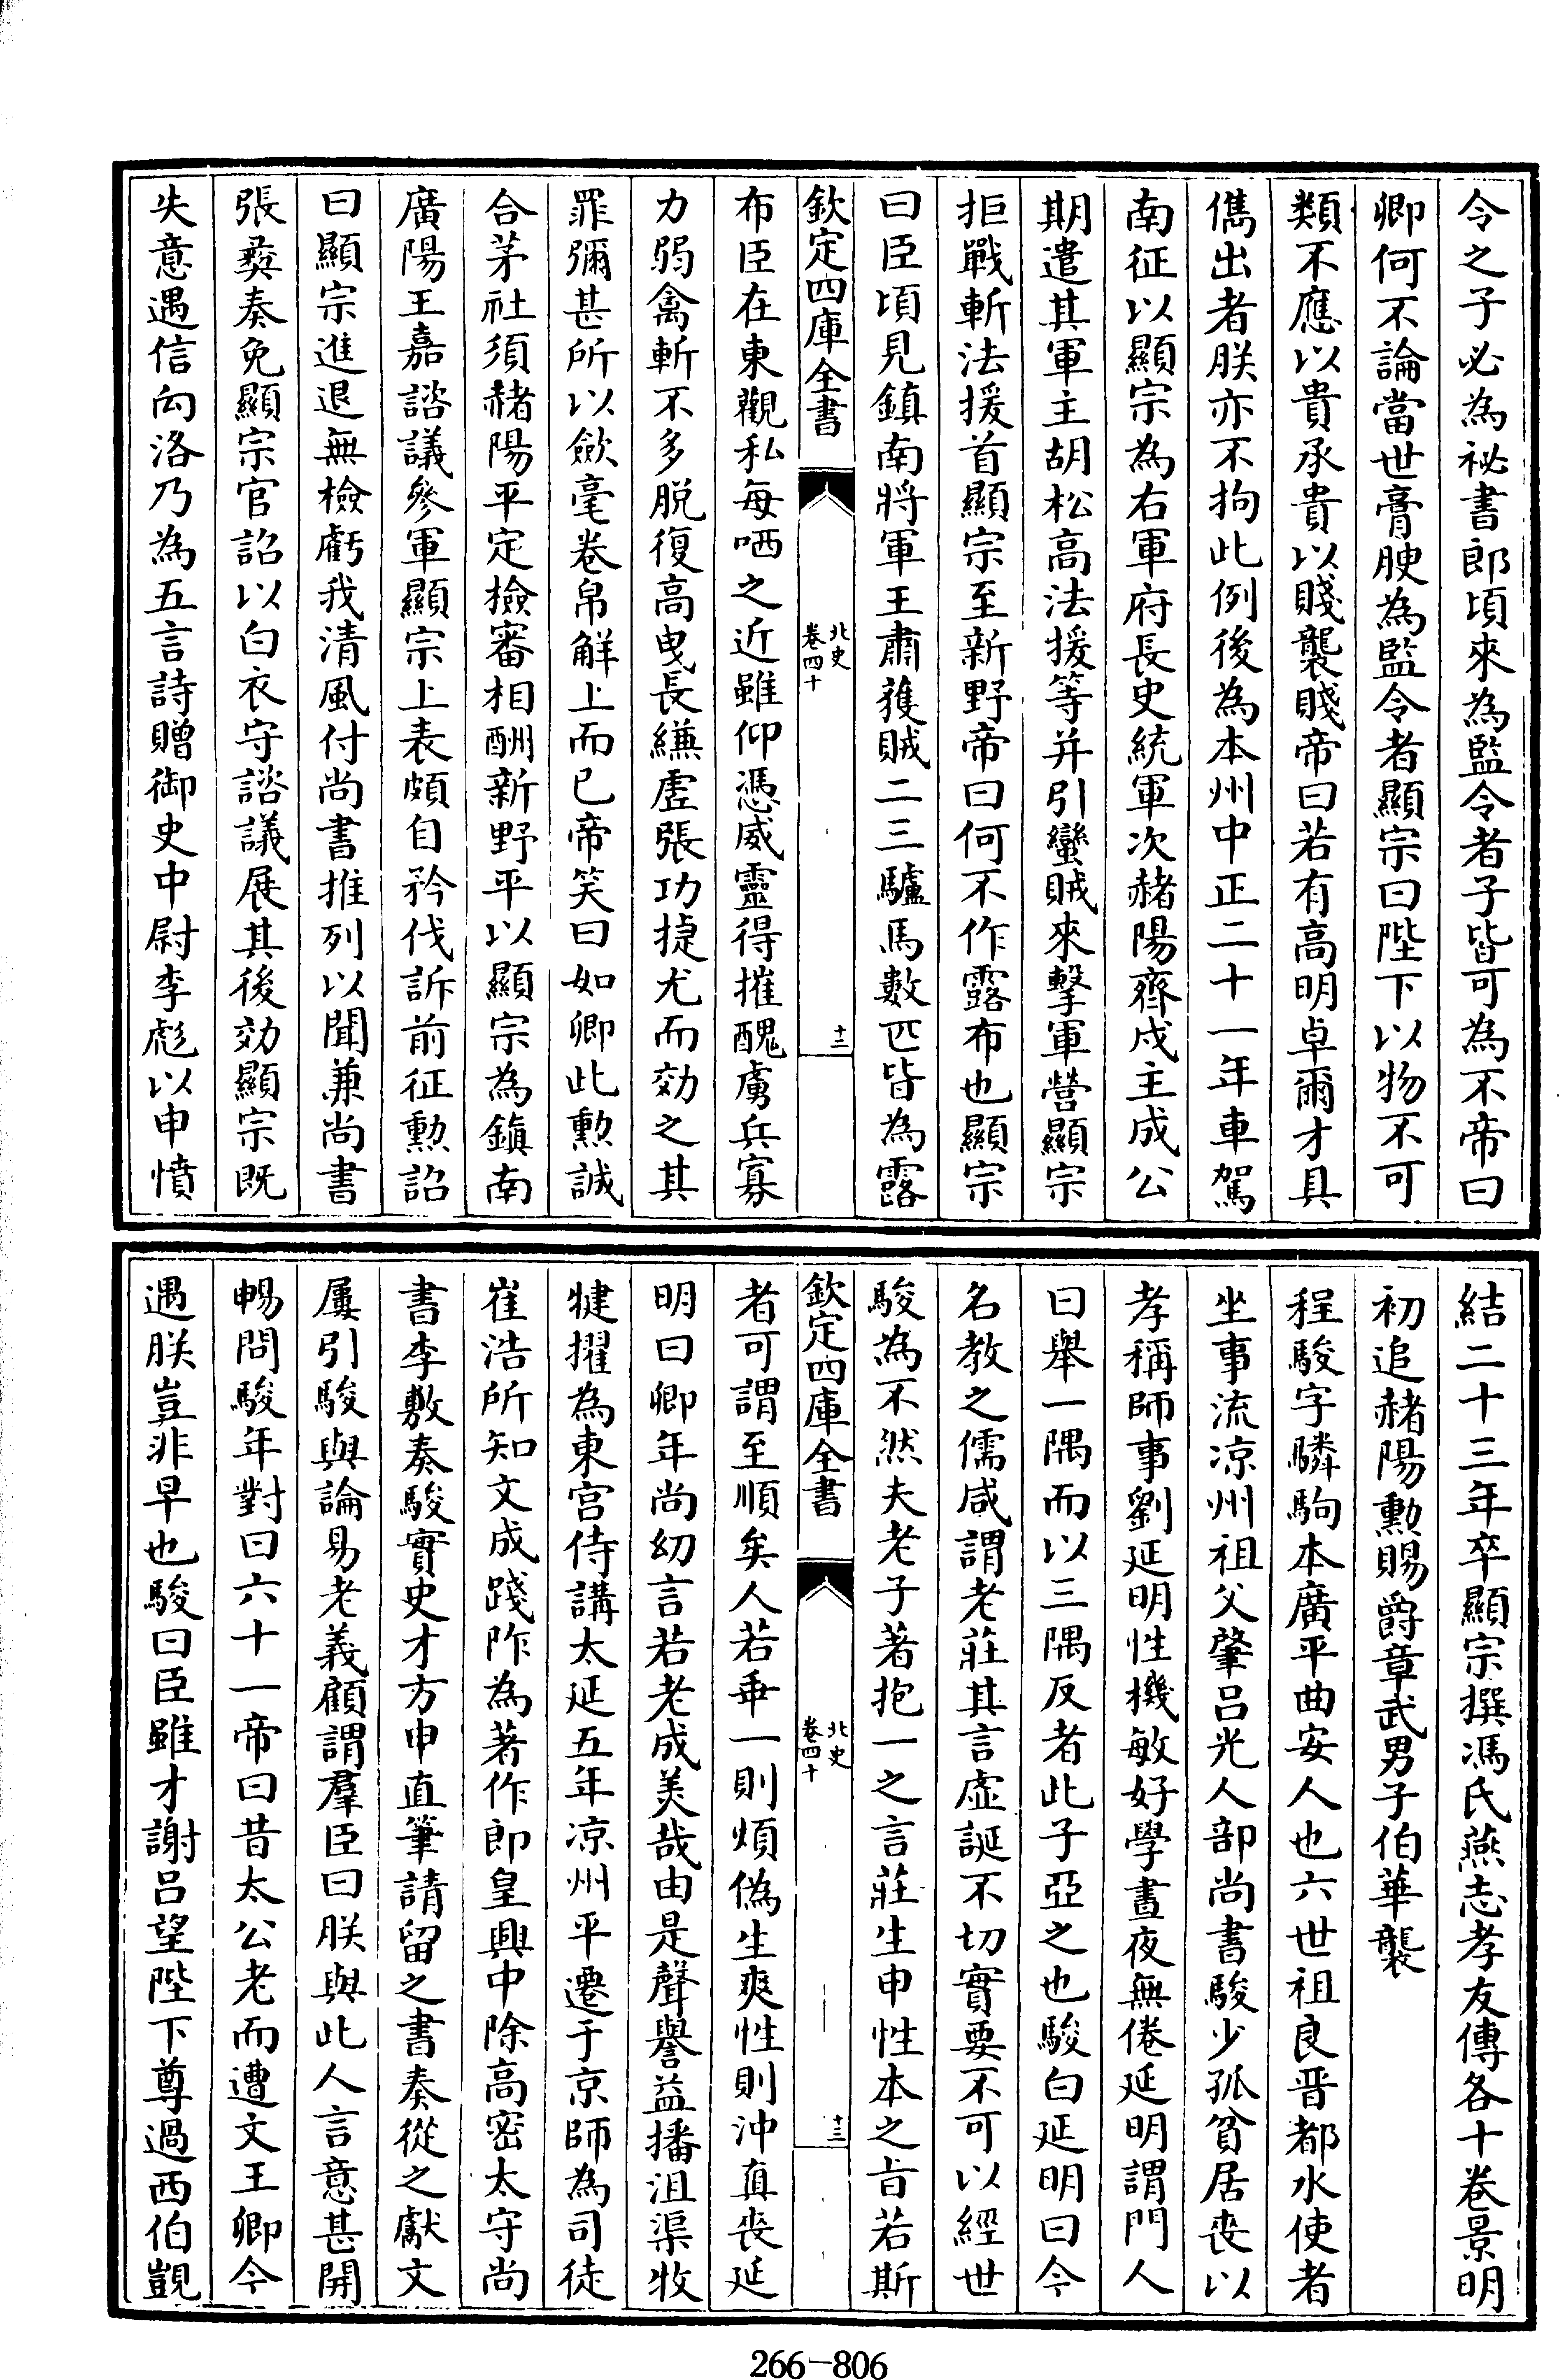 令之子必為祕書郎頃來為監令者子皆可為不帝曰
卿何不論當世膏腴為監令者顯宗曰陛下以物不可
類不應以貴承貴以賤襲賤帝曰若有高明卓爾才具
儁出者朕亦不拘此例後為本州中正二十一年車駕
南征以顯宗為右軍府長史統軍次赭陽齊戍主成公
期遣其軍主胡松高法援等并引蠻賊來擊軍營顯宗
拒戰斬法援首顯宗至新野帝曰何不作露布也顯宗
曰臣頃見鎮南將軍王肅獲賊二三驢馬數匹皆為露
欽定四庫全書
北史
卷四十
十二
布臣在東觀私每哂之近雖仰憑威靈得摧醜虜兵寡
力弱禽斬不多脱復高曳長縑虛張功捷尤而効之其
罪彌甚所以斂毫卷帛解上而已帝笑曰如卿此勲誠
合茅社須赭陽平定檢審相酬新野平以顯宗為鎮南
廣陽王嘉諮議參軍顯宗上表頗自矜伐訴前征勲詔
曰顯宗進退無檢虧我清風付尚書推列以聞兼尚書
張彝奏免顯宗官詔以白衣守諮議展其後効顯宗既
失意遇信向洛乃為五言詩贈御史中尉李彪以申憤
結二十三年卒顯宗撰馮氏燕志孝友傳各十卷景明
初追赭陽勲賜爵章武男子伯華襲
程駿字驎駒本廣平曲安人也六世祖良晋都水使者
坐事流凉州祖父肇吕光人部尚書駿少孤貧居喪以
孝稱師事劉延明性機敏好學晝夜無倦延明謂門人
曰舉一隅而以三隅反者此子亞之也駿白延明曰今
名教之儒咸謂老莊其言虛誕不切實要不可以經世
駿為不然夫老子著抱一之言莊生申性本之㫖若斯
欽定四庫全書
北史
卷四十
十三
者可謂至順矣人若乖一則煩偽生爽性則沖真喪延
明曰卿年尚幼言若老成美哉由是聲譽益播沮渠牧
犍擢為東宫侍講太延五年凉州平遷于京師為司徒
崔浩所知文成踐阼為著作郎皇興中除高密太守尚
書李敷奏駿實史才方申直筆請留之書奏從之獻文
屢引駿與論易老義顧謂羣臣曰朕與此人言意甚開
暢問駿年對曰六十一帝曰昔太公老而遭文王卿今
遇朕豈非早也駿曰臣雖才謝吕望陛下尊過西伯覬
266—806